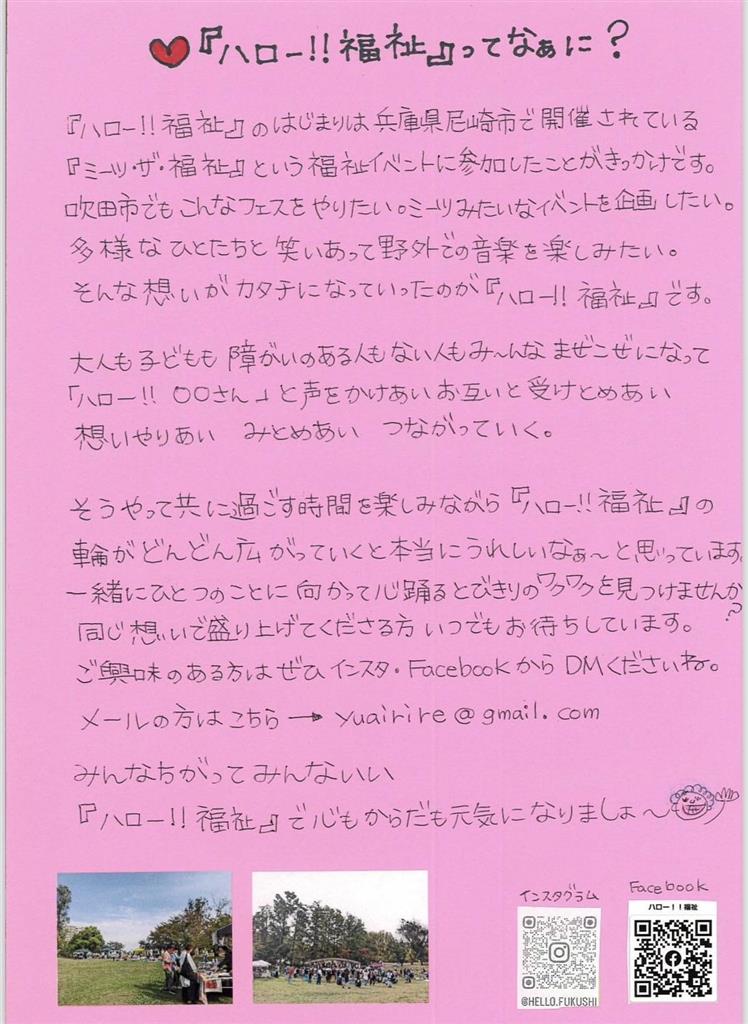 『ハロー!!福祉』ってなぁに?
『ハロー!!福祉』のはじまりは兵庫県尼崎市で開催されている
『ミーツ・ザ・福祉』という福祉イベントに参加したことがきっかけです。
吹田市でもこんなフェスをやりたい。ミーツみたいなイベントを企画したい。
多様なひとたちと笑いあって野外での音楽を楽しみたい。
そんな想いがカタチになっていったのが『ハロー!!福祉』です。
大人も子どもも障がいのある人もない人もみ〜んなまぜこぜになって
「ハロー!!〇〇さん」と声をかけあいお互いと受けとめあい
想いやりあい みとめあい つながっていく。
そうやって共に過ごす時間を楽しみながら『ハロー!!福祉』の
輪がどんどん広がっていくと本当にうれしいなぁ〜と思っています。
一緒にひとつのことに向かって心踊るとびきりのワクワクを見つけませんか?
同じ想いで盛り上げてくださる方いつでもお待ちしています。
ご興味のある方はぜひインスタ・FacebookからDMくださいね。
メールの方はこちら→yuairire@gmail.com
みんなちがってみんないい
『ハロー!!福祉』で心もからだも元気になりましょ〜
インスタグラム
@HELLO.FUKUSHI
Facebook
ハロー!!福祉